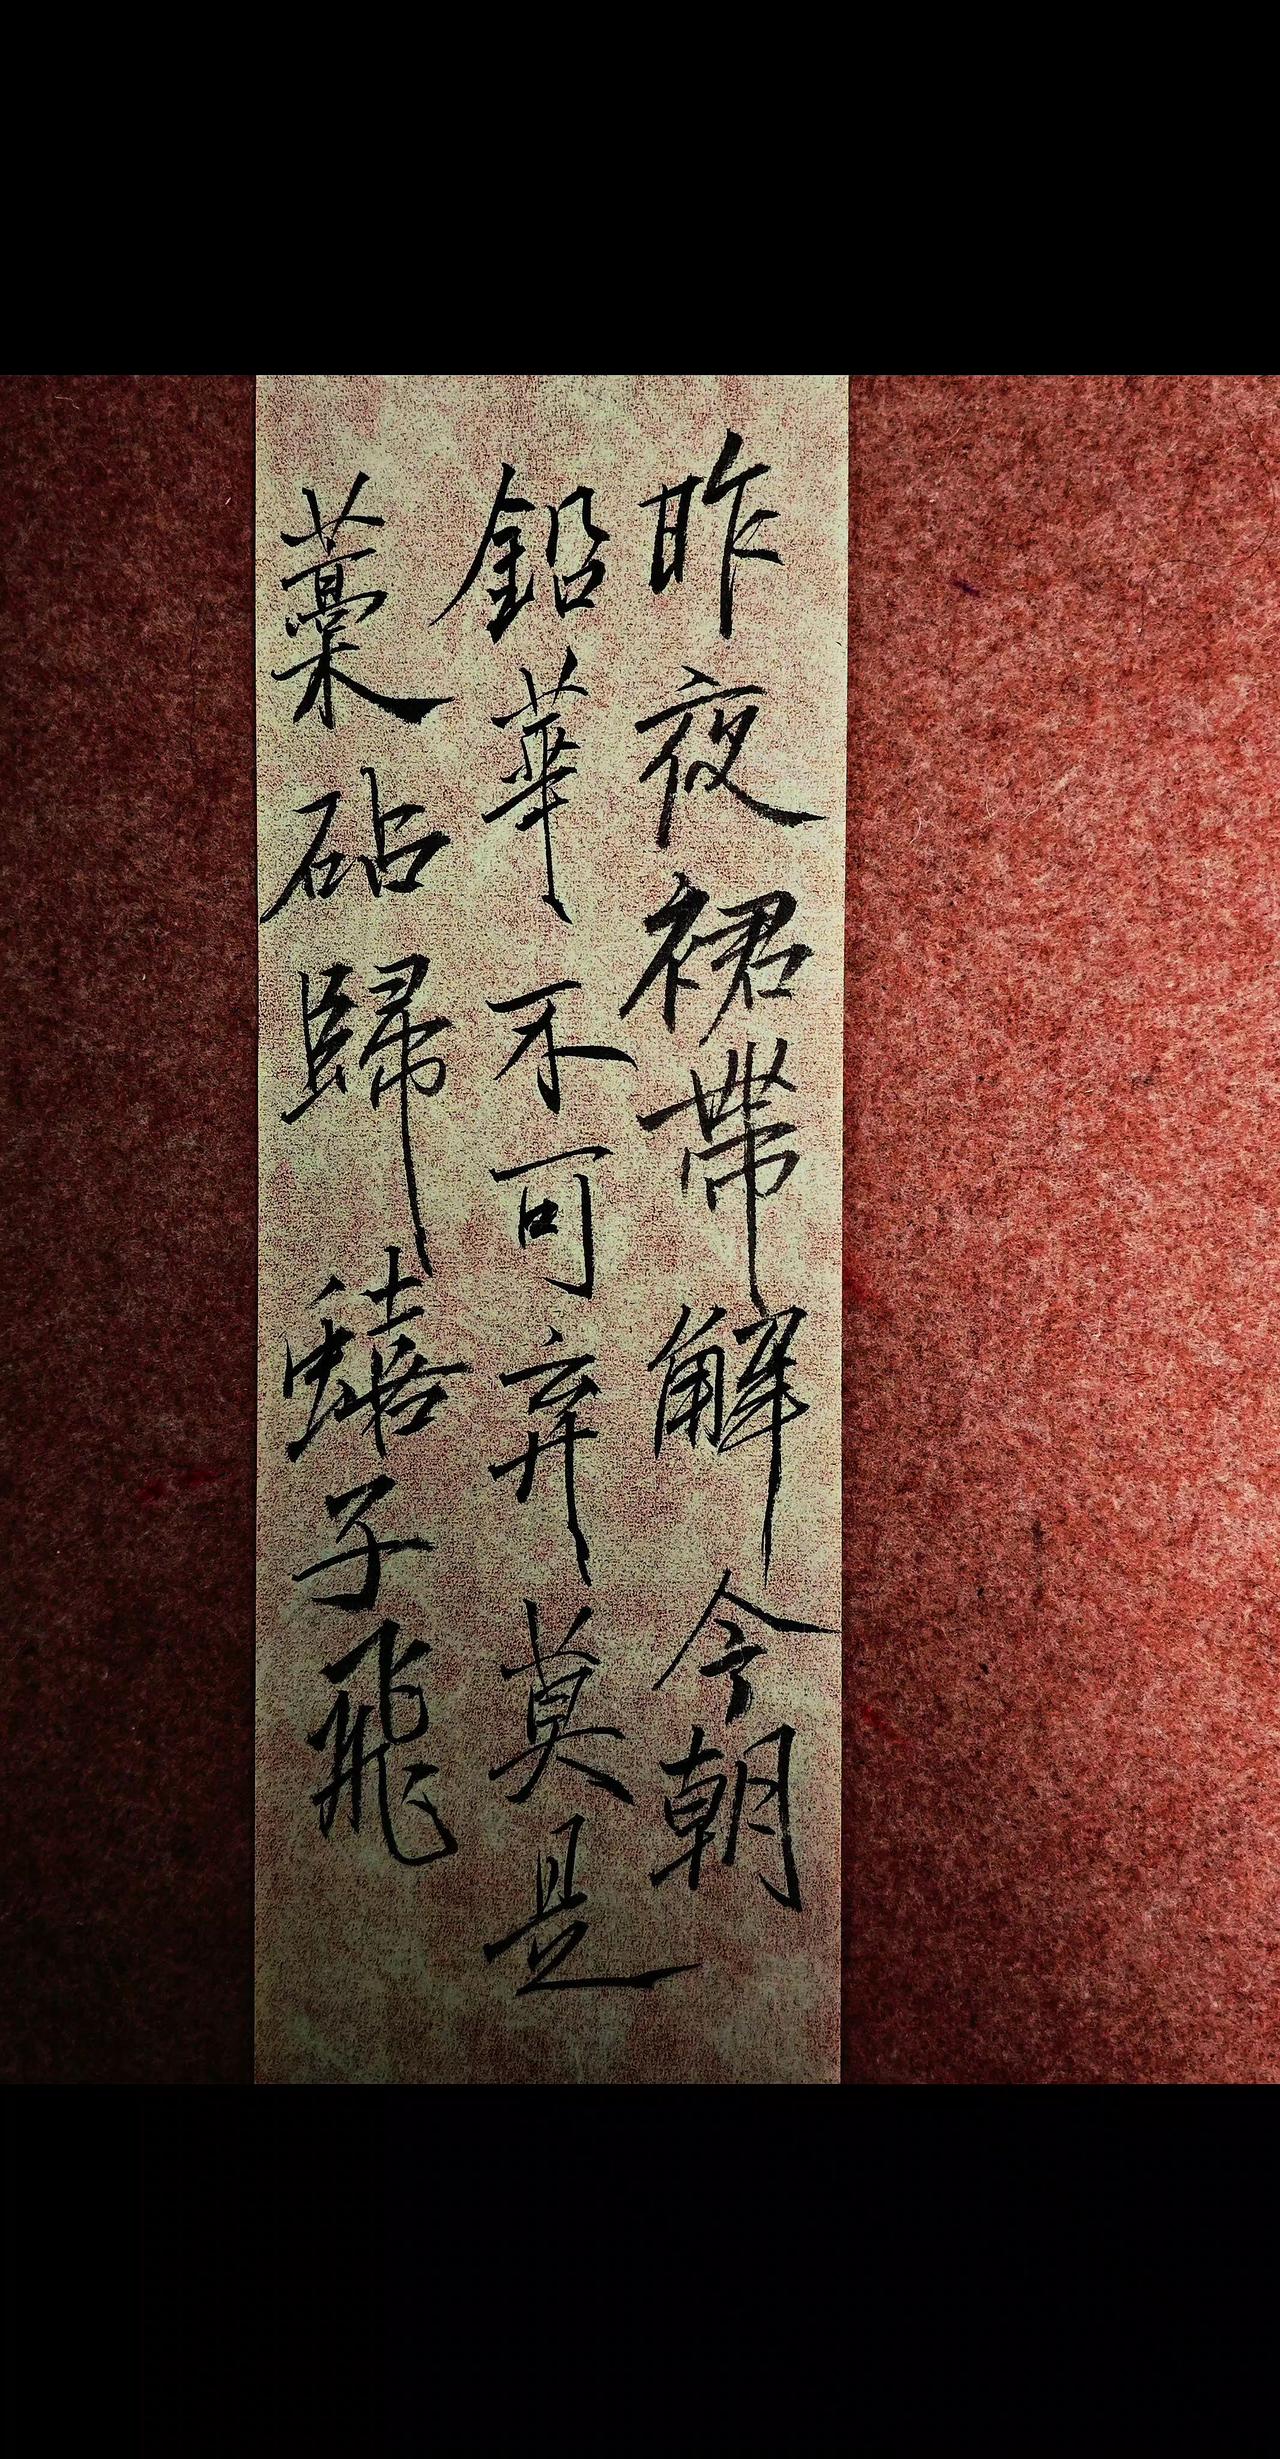 昨夜裙帶解今朝
鉛華不可弃莫是
藁砧歸蟢子飛